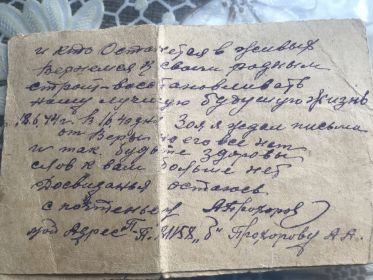 и кто Останется в живых
вернемся к своим родным
строит-восстановливать
нашу лучшую будущую жизнь
18.6.44 г. Зоя я ждал письма
от его все нет
и так будьте здоровы
слов к вам больше нет
Досвиданья остаюсь
с почтением А Прохоров
мой Адрес П.П. "Б" Прохорову А.А.